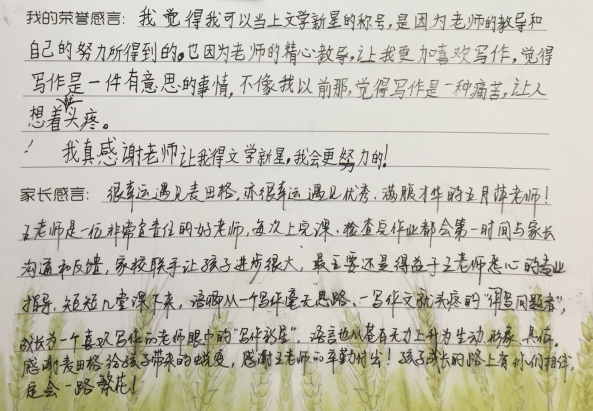 我的荣誉感言：我觉得我可以当上文学新星的称号，是因为老师的教导和
自己的努力所得到的。也因为老师的精心教导，让我更加喜欢写作，觉得
写作是一件有意思的事情，不像我以前那，觉得写作是一种痛苦，让人
想着就头疼。
！我真感谢老师让我得文学新星，我会更努力的！
家长感言：很幸运遇见麦田格，亦很幸运遇见优秀、满腹才华的王月萍老师！
王老师是一位非常负责任的好老师，每次上完课、检查完作业都会第一时间与家长
沟通和反馈，家校联手让孩子进步很大，最主要还是得益于王老师悉心的专业
指导，短短几堂课下来，语卿从一个写作毫无思路、一写作文就头疼的“作写问题者”，
成长为一个喜欢写作的老师眼中的“写作新星”，语言也从苍白无力上升为生动、形象、具体，
感谢麦田格给孩子带来的蜕变，感谢王老师的辛勤付出！孩子成长的路上有你们相伴，
定会一路繁花！